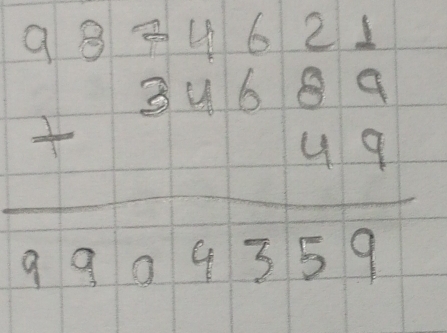 9874621
34689
+ 49
9909359